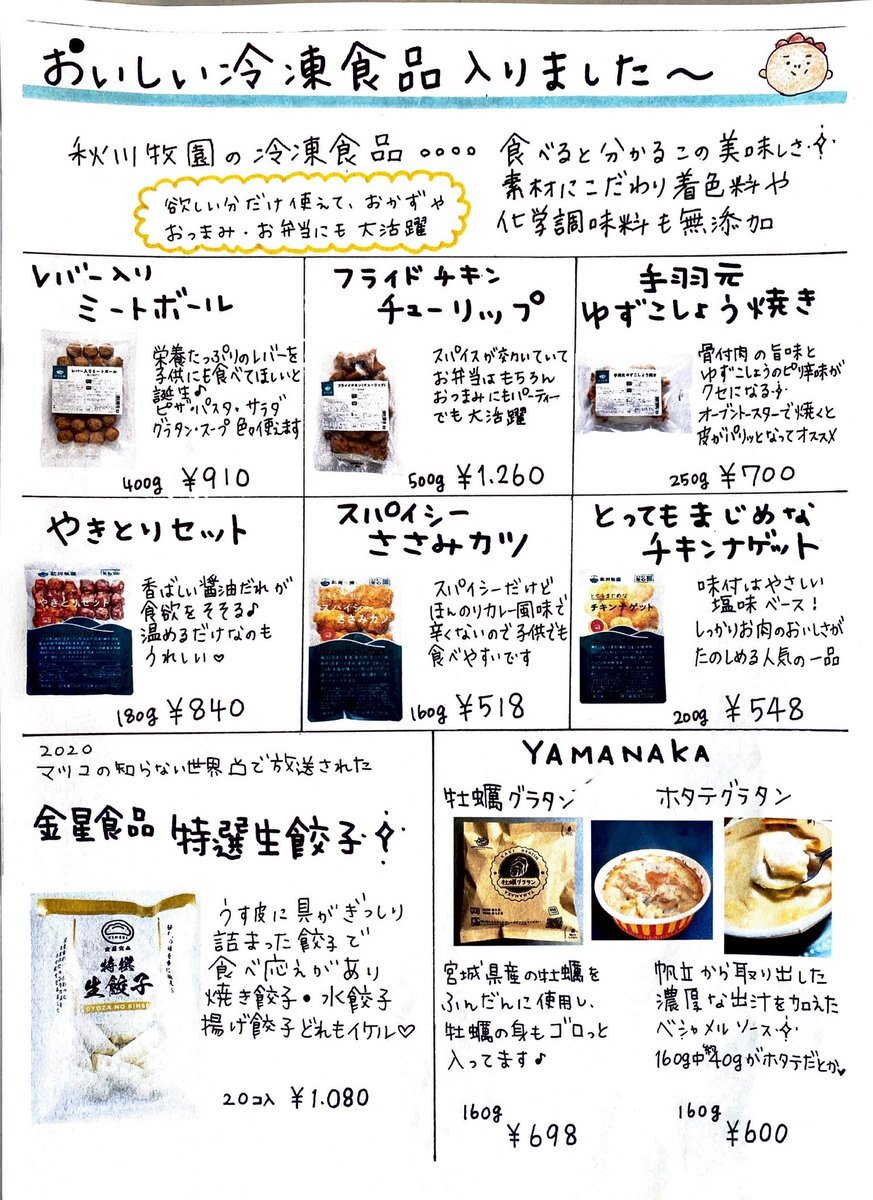 おいしい冷凍食品入りました〜
秋川牧園の冷凍食品。。。。
食べると分かるこの美味しさ
素材にこだわり着色料や
化学調味料も無添加
欲しい分だけ使えて、おかずや
おつまみ・お弁当にも大活躍
レバー入り
ミートボール
レバー入りミートボール
栄養たっぷりのレバーを
子供にも食べてほしいと
誕生♪
ピザ・パスタ・サラダ
グラタン・スープ 色々使えます
400g ¥910
フライドチキン
チューリップ
フライドチキン(チューリップ)
スパイスが効いていて
お弁当はもちろん
おつまみにもパーティー
でも大活躍
500g ¥1.260
手羽元
ゆずこしょう焼き
骨付肉の旨味と
ゆずこしょうのピリ辛味が
クセになる
オーブントースターで焼くと
皮がパリッとなってオススメ
250g ¥700
やきとりセット
秋川牧園
やきとりセット
香ばしい醤油だれが
食欲をそそる♪
温めるだけなのも
うれしい♡
180g ¥840
スパイシー
ささみカツ
スパイシー
ささみカツ
スパイシーだけど
ほんのりカレー風味で
辛くないので子供でも
食べやすいです
160g ¥518
とってもまじめな
チキンナゲット
とってもまじめな
チキンナゲット
味付はやさしい
塩味ベース!
しっかりお肉のおいしさが
たのしめる人気の一品
200g ¥548
2020
マツコの知らない世界凸で放送された
金星食品 特選生餃子
金星食品
特撰
生餃子
GYOZA NO KINSEI
うす皮に具がぎっしり
詰まった餃子で
食べ応えがあり
焼き餃子・水餃子
揚げ餃子どれもイケル♡
20コ入 ¥1.080
YAMANAKA
牡蠣グラタン
牡蠣グラタン
宮城県産の牡蠣を
ふんだんに使用し、
牡蠣の身もゴロっと
入ってます♪
160g
¥698
ホタテグラタン
帆立から取り出した
濃厚な出汁を加えた
ベシャメルソース
160g中約40gがホタテだとか♥
160g
¥600